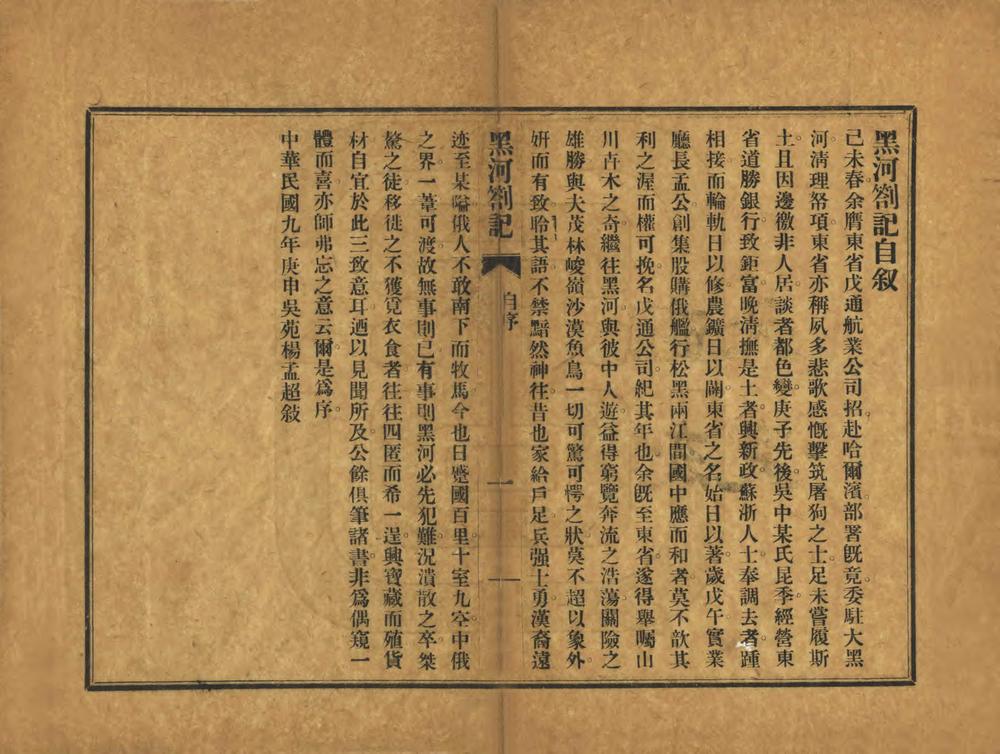 黑河劄記自叙
己未春余膺東省戊通航業公司招赴哈爾濱部署旣竟委駐大黑
河清理帑項東省亦稱夙多悲歌感慨擊筑屠狗之士足未嘗履斯
土且因邊徼非人居談者都色變庚子先後吳中某氏昆季經營東
省道勝銀行致鉅富晚淸撫是土者興新政蘇浙人士奉調去者踵
相接而輪軌日以修農鑛日以闢東省之名始日以著歲戊午實業
廳長孟公創集股購俄艦行松黑兩江間國中應而和者莫不歆其
利之渥而權可挽名戊通公司紀其年也余旣至東省遂得舉囑山
川卉木之奇繼往黑河與彼中人遊益得窮覽奔流之浩蕩關險之
雄勝與夫茂林峻嶺沙漠魚鳥一切可驚可愕之狀莫不超以象外
妍而有致聆其語不禁黯然神往昔也家給戶足兵强士勇漢裔遠
黑河劄記
自序
一
迹至某嗌俄人不敢南下而牧馬今也日蹙國百里十室九空中俄
之界一葦可渡故無事則已有事則黑河必先犯難況潰散之卒桀
驁之徒移徙之不獲覓衣食者往往四匿而希一逞興寶藏而殖貨
材自宜於此三致意耳迺以見聞所及公餘俱筆諸書非爲偶窺一
體而喜亦師弗忘之意云爾是爲序
中華民國九年庚申吳苑楊孟超敍